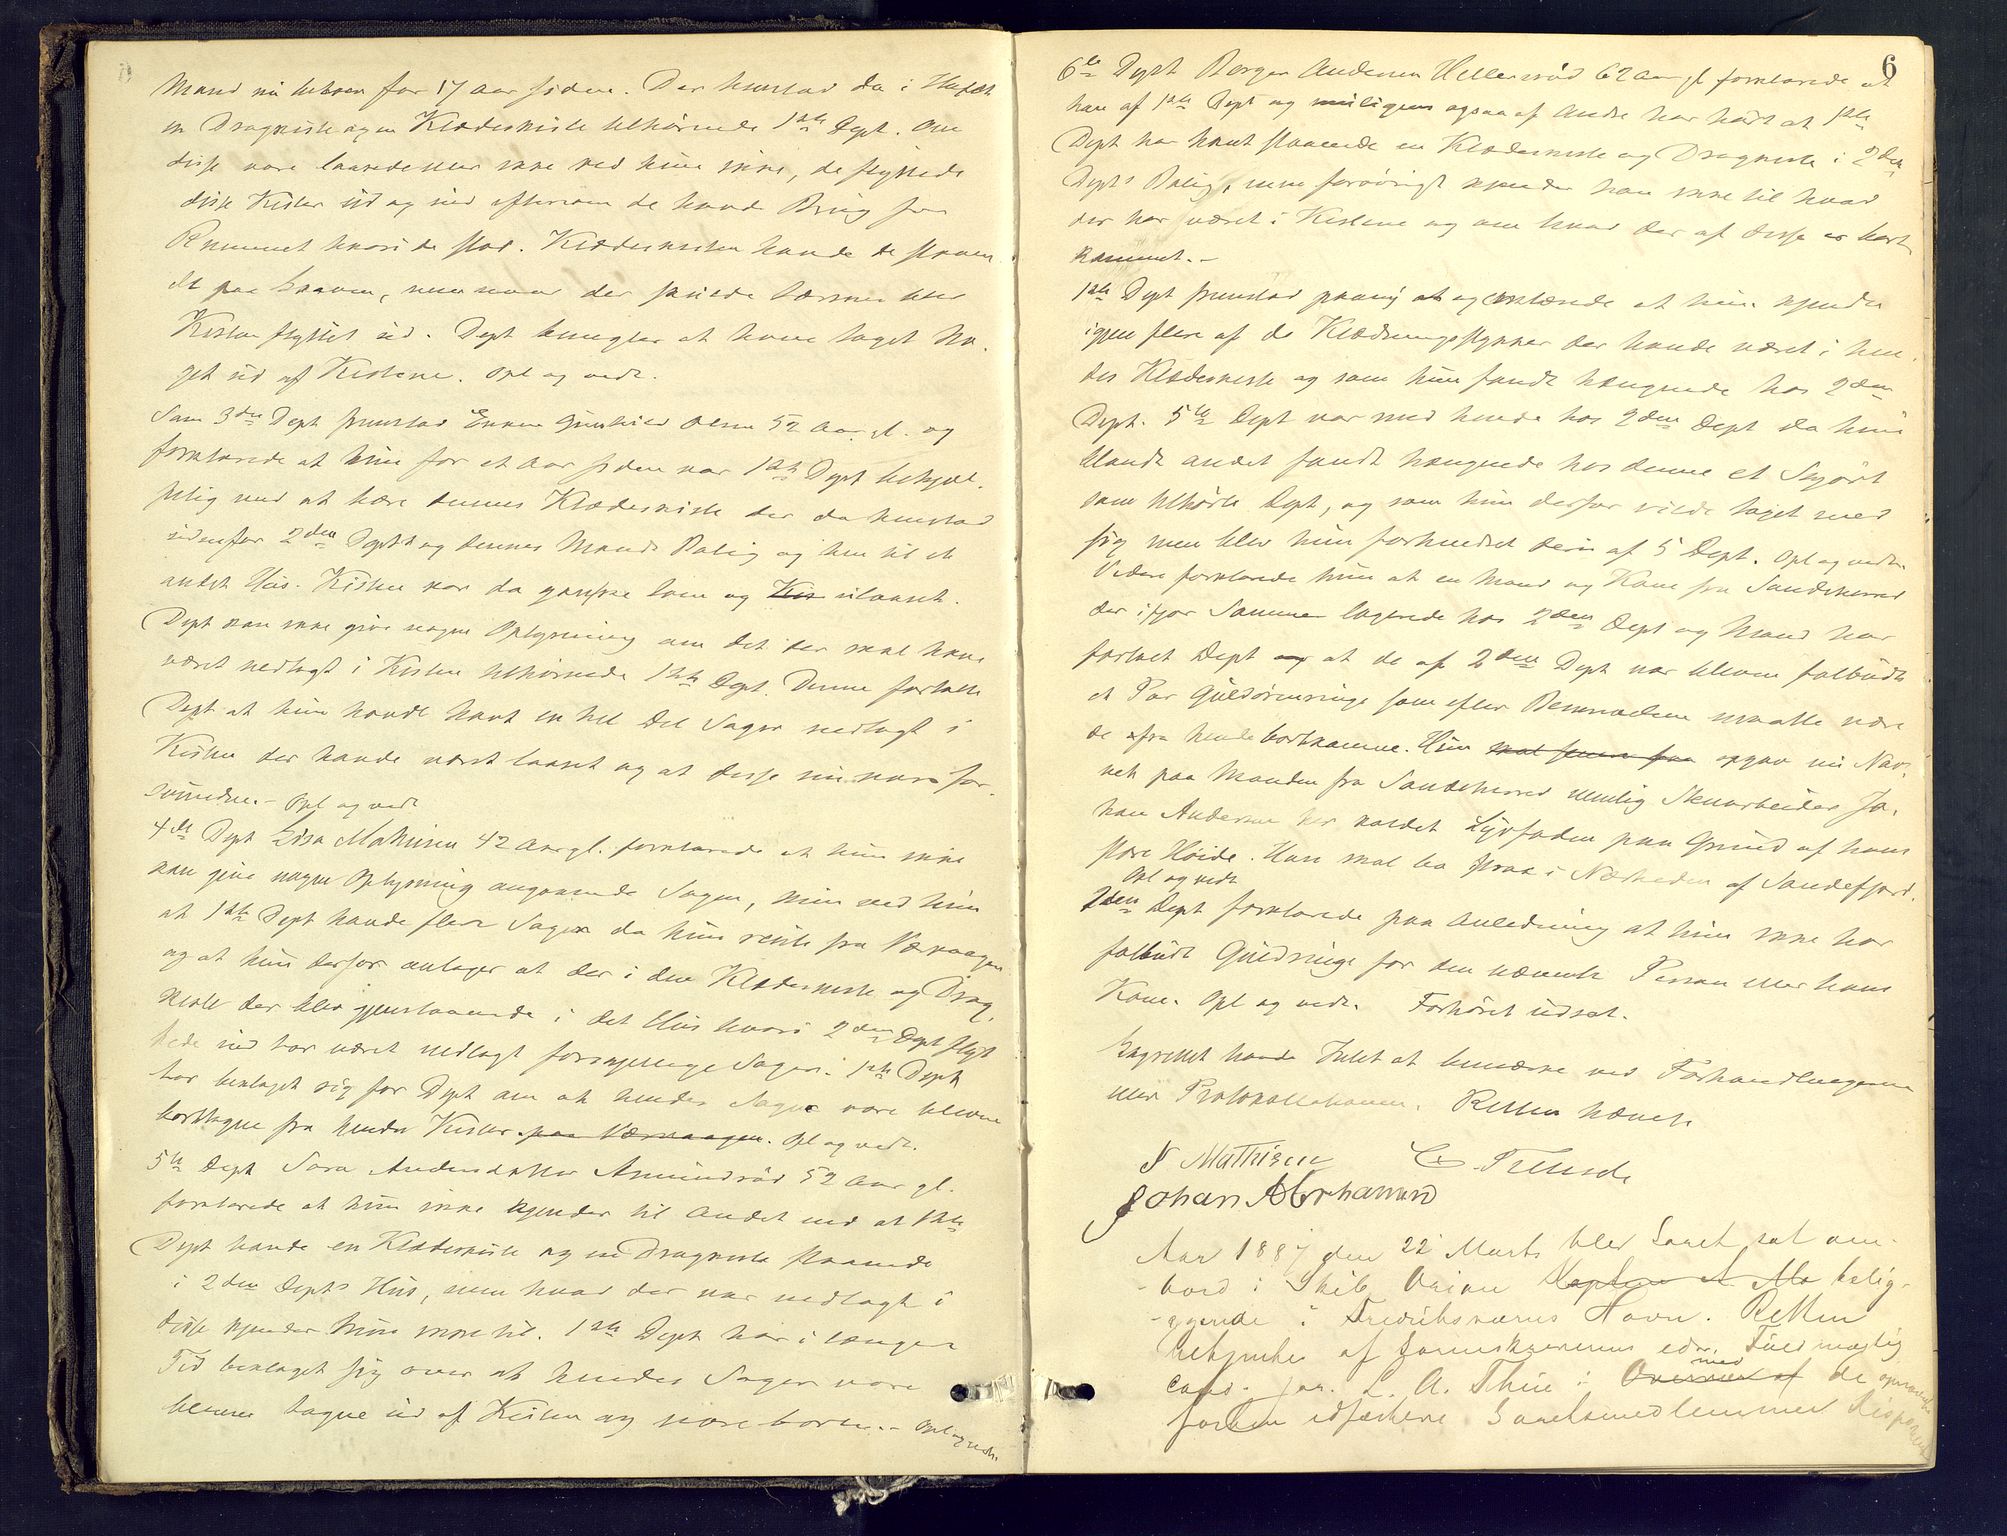 Mand nu Enken for 17 Aar siden. Der henstod da i Huset
en Dragkiste og en Klædeskiste tilhørende 1ste Dept. Om
disse vare laasede eller ikke ved hun ikke, de flyttede
disse Kister ud og ind eftersom de havde Brug for
Rummet hvori de stod. Klædeskisten havde de staaen
de paa Laaven, men naar der skulde tærskes blev
Kisten flyttet ud. Dept benegter at have taget No-
get ud af Kistene. Opl og vedt.
Som 3die Dept fremstod Enken Gunhild Olsen 52 Aar gl. og
forklarede at hun for et Aar siden var 1ste Dept behjæl-
pelig med at bære dennes Klædeskiste der da henstod
udenfor 2den Depts og dennes Mands Bolig og hen til et
andet Hus. Kisten var da ganske tom og Kis ulaaset.
Dept kan ikke give nogen Oplysning om det der skal have
været nedlagt i Kisten tilhørende 1ste Dept. Denne fortalte
Dept at hun havde havt en hel Del Sager nedlagt i
Kisten der havde været laaset og at disse nu vare for-
svundne. - Opl og vedt
4de Dept Lisa Mathisen 42 Aar gl. forklarede at hun ikke
kan give nogen Oplysning angaaende Sagen, hun ved kun
at 1ste Dept havde flere Sager da hun reiste fra Værvaagen
og at hun derfor antager at der i den Klædeskiste og Drag-
kiste der blev gjenstaaende i det Hus hvori 2den Dept flyt
tede ind har været nedlagt forskjellige Sager. 1ste Dept
har beklaget sig for Dept om at hendes Sager vare blevne
borttagne fra hendes Kister paa Værvaagen. Opl og vedt.
5te Dept Sara Andersdatter Amundrød 52 Aar gl.
forklarede at hun ikke kjender til Andet end at 1ste
Dept havde en Klædeskiste og en Dragkiste staaende
i 2den Depts Hus, men hvad der var nedlagt i
disse kjender hun ikke til. 1ste Dept har i længere
Tid beklaget sig over at hendes Sager vare
blevne tagne ud af Kisten og vare borte. - Opl og vedt.
6
6te Dept Borger Andersen Hellersrød 62 Aar gl forklarede at
han af 1ste Dept og muligens ogsaa af Andre har hørt at 1ste
Dept har havt staaende en Klædeskiste og Dragkiste i 2den
Depts Bolig, men forøvrigt kjender han ikke til hvad
der har været i Kistene og om hvad der af disse er bort
kommet. -
1ste Dept fremstod paany og erklærede at hun kjendte
igjen flere af de Klædningsstykker der havde været i hen-
des Klædeskiste og som hun fandt hængende hos 2den
Dept. 5te Dept var med hende hos 2den Dept da hun
blandt andet fandt hængende hos denne et Skjørt
som tilhørte Dept, og som hun derfor vilde taget med
sig men blev hun forhindret deri af 5 Dept. Opl og vedt.
Videre forklarede hun at en Mand og Kone fra Sandeherred
der ifjor Sommer logerede hos 2den Dept og Mand har
fortalt Dept at de af 2den Dept var bleven falbudt
et Par Guldørenringe som efter Beskrivelsen maatte være
de fra hende bortkomne. Hun skal opgav nu Nav-
net paa Manden fra Sandeherred nemlig Stenarbeider Jo-
han Andersen her kaldet Lysfaden paa Grund af hans
store Høide. Han skal bo strax i Nærheden af Sandefjord.
Opl og vedt
2den Dept forklarede paa Anledning at hun ikke har
falbudt Guldringe for den nævnte Person eller hans
Kone. Opl og vedt. Forhøret udsat.
Lagrettet havde Intet at bemærke ved Forhandlingerne
eller Protokollationen. Retten hævet.
N Mathisen
Johan Abrahamsen
Aar 1887 den 22 Marts blev Søret sat om-
-bord i Skib Orion Kaptein A. Mo belig-
-ggende i Fredriksværns Havn. Retten
betjentes af Sorenskriverens edsv. Fuldmægtig
cand. jur. L. A. Thue i Overvær af med de
edfæstede Søretsmedlemmer